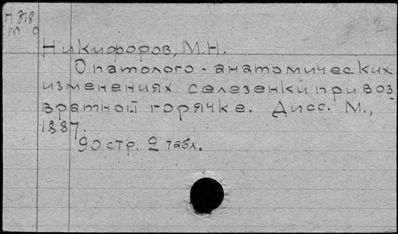 Н 318
М 0
Никифоров, М.Н.
О патолого-анатомических
изменениях селезенки при воз
вратной горячке. Дисс. М.,
1887.
90 стр. 2 табл.